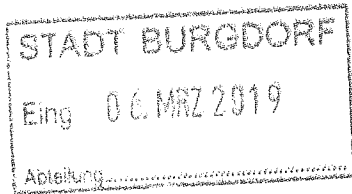 STADT BURGDORF
Eing 06. MRZ 2019
Abteilung